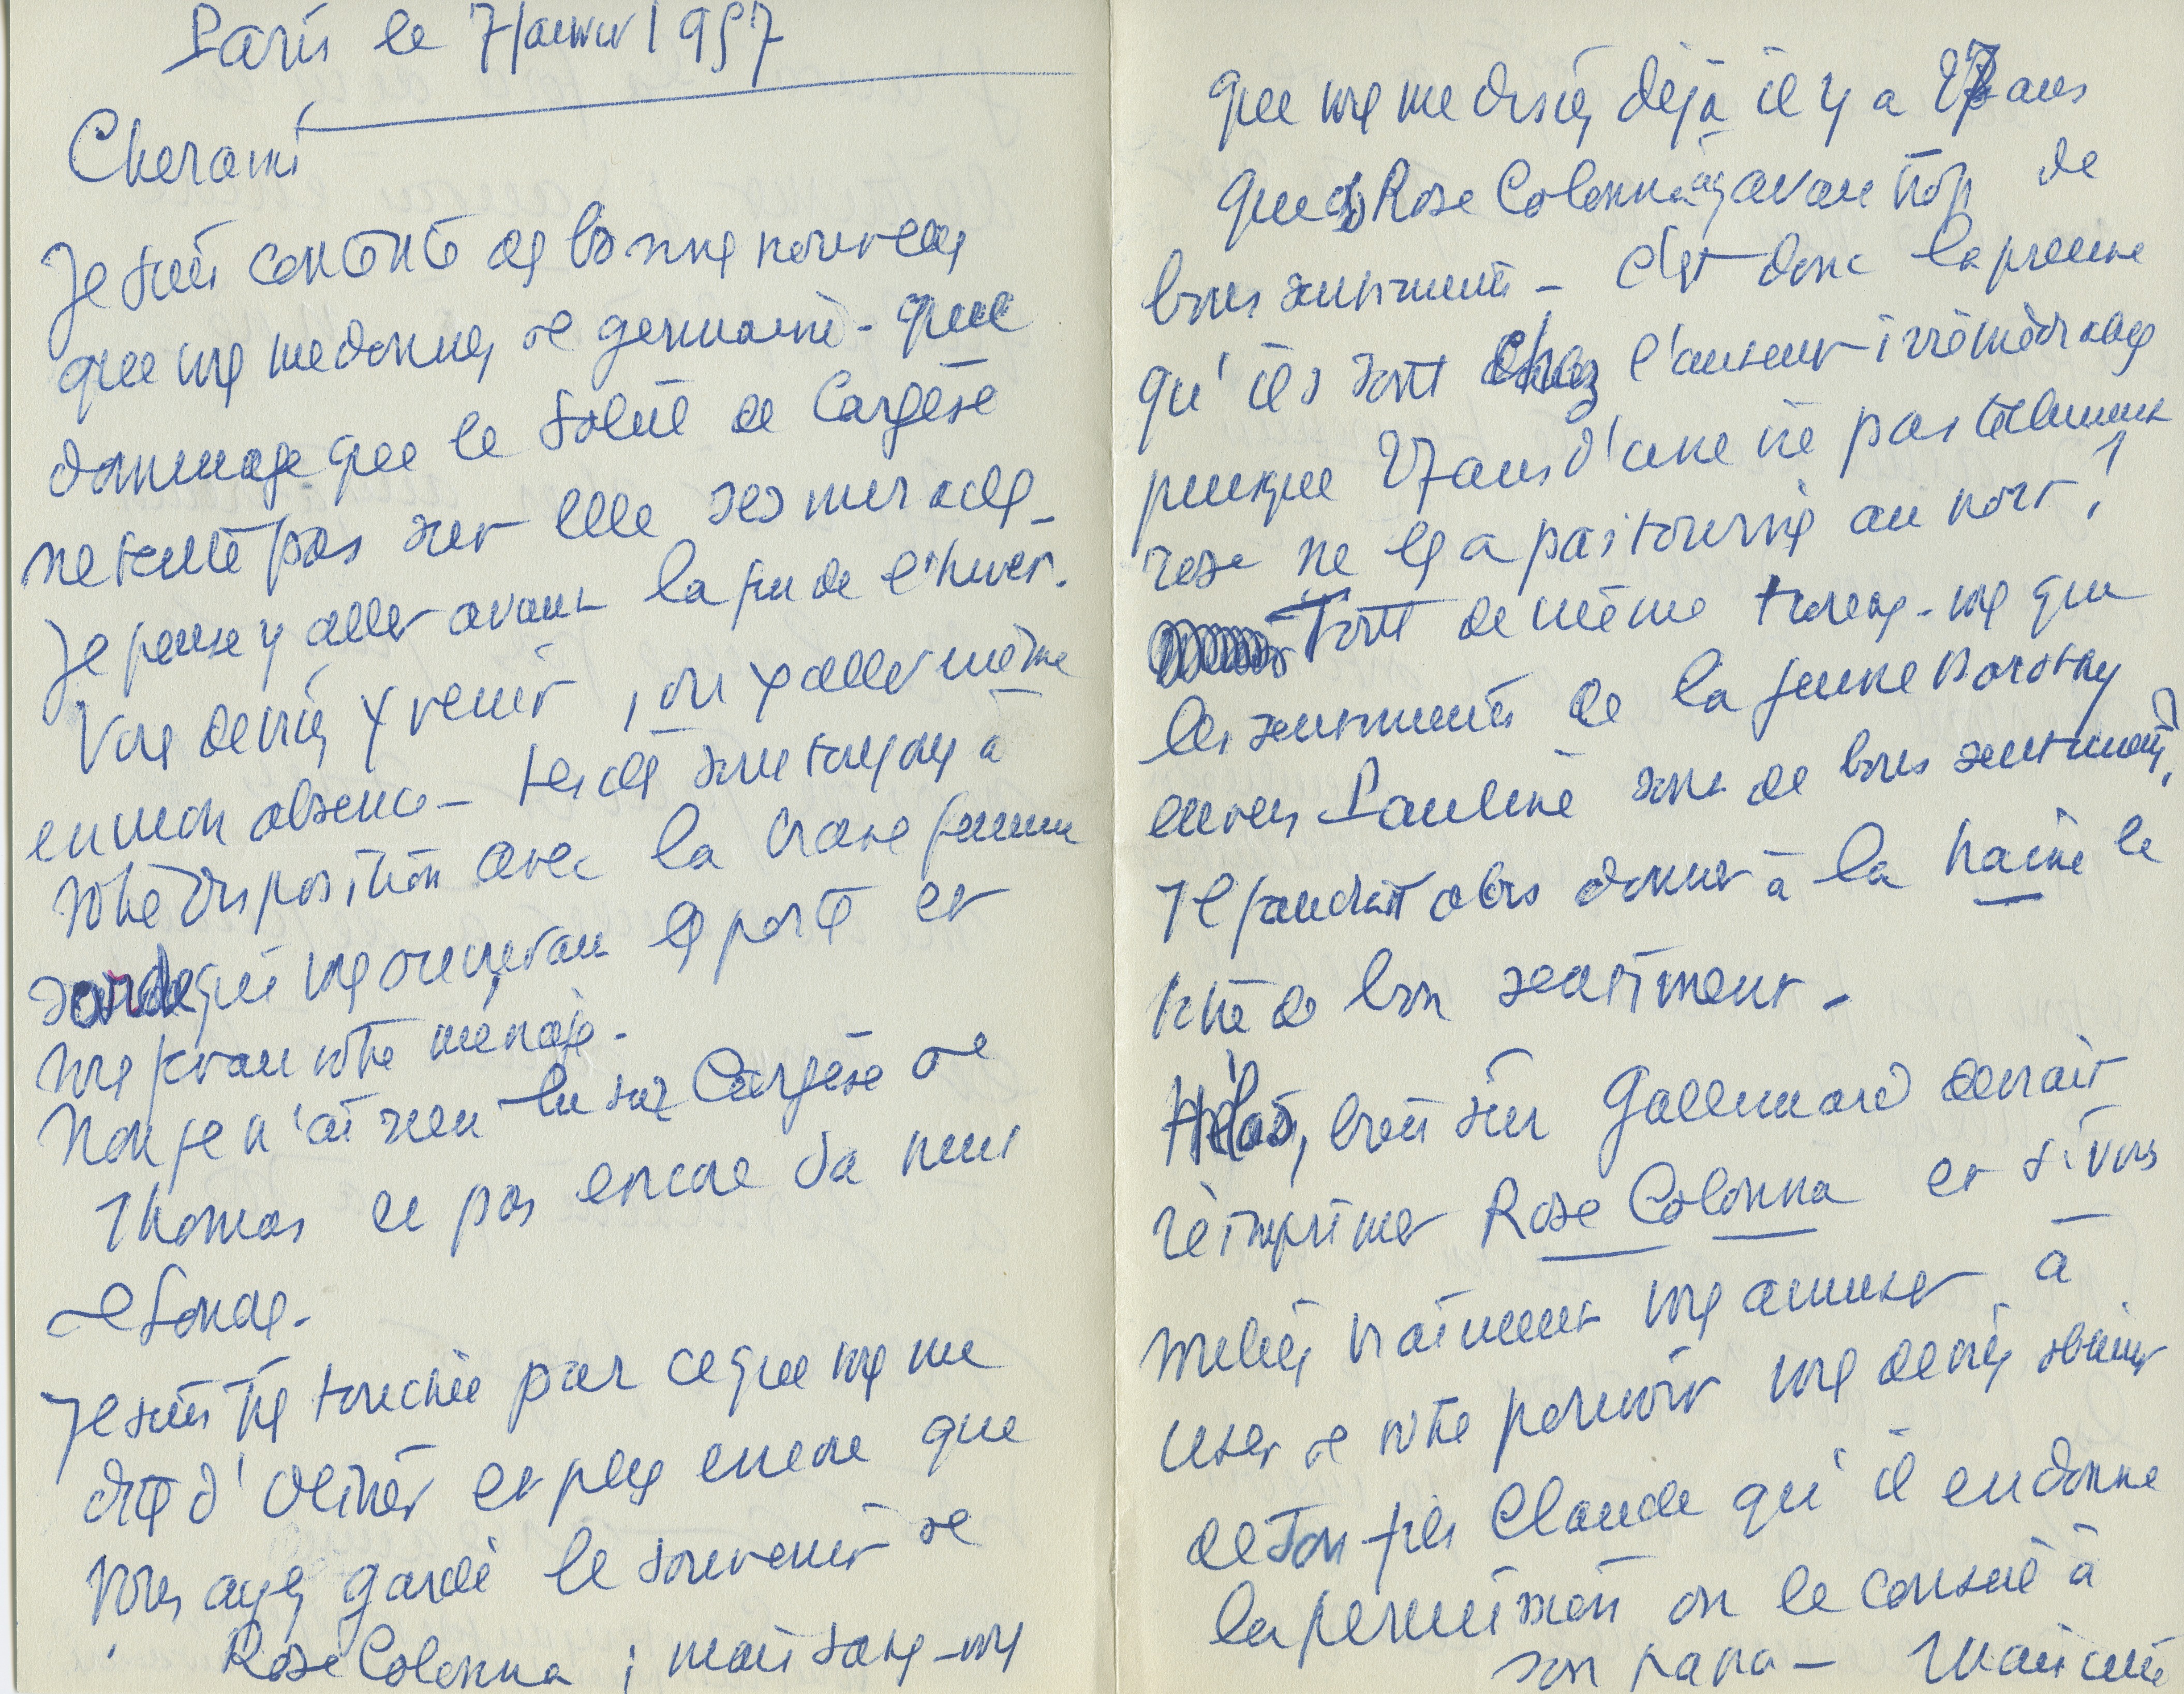 Paris le 7 Janvier 1957
Cher ami
Je suis contente des bonnes nouvelles
que vous me donnez de Germaine - quel
dommage que le soleil de Cargèse
ne tente pas sur elle ses miracles -
Je pense y aller avant la fin de l'hiver.
Vous devriez y venir, ou y aller même
en mon absence - les clés sont toujours à
votre disposition avec la brave femme
sarde qui vous ouvrirait les portes et
vous ferait votre ménage.
Non je n'ai rien lu sur Cargèse de
Thomas et pas encore sa nuit
de Londres.
Je suis très touchée par ce que vous me
dites d'Olivier et plus encore que
vous ayez gardé le souvenir de
Rose Colonna ; mais savez-vous
que vous me disiez déjà il y a 27 ans
que Rose Colonna avait trop de
bons sentiments - C'est donc la preuve
qu'ils sont chez l'auteur irrémédiables
puisque 27 ans d'une vie pas tellement
rose ne les a pas tournés au noir !
Tout de même trouvez-vous que
les sentiments de la jeune Dorothy
envers Pauline sont de bons sentiments ?
Il faudrait alors donner à la haine le
titre de bon sentiment -
Hélas, bien sûr Gallimard devrait
réimprimer Rose Colonna et si vous
vouliez vraiment vous amuser à
user de votre pouvoir vous devriez obtenir
de son fils Claude qu'il en donne
la permission ou le conseil à
son papa - Mais cette